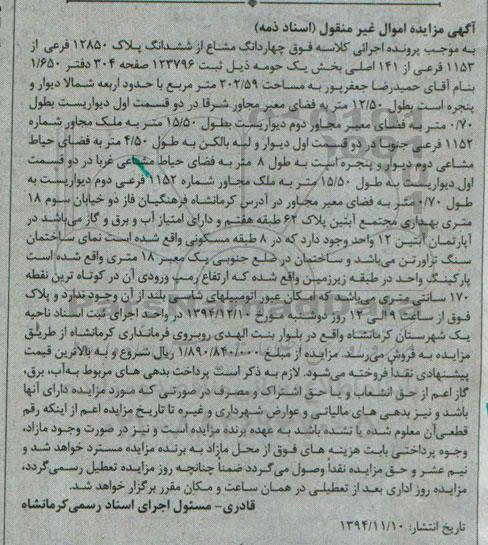 آگهی مزایده اموال غیر منقول (اسناد ذمه)
به موجب پرونده اجرائی کلاسه فوق چهاردانگ مشاع از ششدانگ پلاک ۱۲۸۵۰ فرعی از
۱۱۵۳ فرعی از ۱۴۱ اصلی بخش یک حومه ذیل ثبت ۱۲۳۷۹۶ صفحه ۳۰۴ دفتر ۱/۶۵۰
بنام آقای حمیدرضا جعفرپور به مساحت ۳۰۲/۵۹ متر مربع با حدود اربعه شمالا دیوار و
پنجره است بطول ۱۲/۵۰ متر به فضای معبر مجاور شرقا در دو قسمت اول دیواریست بطول
۰/۷۰ متر به فضای معبر مجاور دوم دیواریست بطول ۱۵/۵۰ متر به ملک مجاور شماره
۱۱۵۲ فرعی جنوبا در دو قسمت اول دیوار و لبه بالکن به طول ۴/۵۰ متر به فضای حیاط
مشاعی دوم دیوار و پنجره است به طول ۸ متر به فضای حیاط مشاعی غربا در دو قسمت
اول دیواریست به طول ۱۵/۵۰ متر به ملک مجاور شماره ۱۱۵۲ فرعی دوم دیواریست به
طول ۰/۷۰ متر به فضای معبر مجاور در آدرس کرمانشاه فرهنگیان فاز دو خیابان سوم ۱۸
متری بهداری مجتمع آبتین پلاک ۶۴ طبقه هفتم و دارای امتیاز آب و برق و گاز می‌باشد در
آپارتمان آبتین ۱۲ واحد وجود دارد که در ۸ طبقه مسکونی واقع شده است نمای ساختمان
سنگ تراورتن می‌باشد و ساختمان در ضلع جنوبی یک معبر ۱۸ متری واقع شده است
پارکینگ واحد در طبقه زیرزمین واقع شده که ارتفاع رمپ ورودی آن در کوتاه ترین نقطه
۱۷۰ سانتی متری می‌باشد که امکان عبور اتومبیلهای شاسی بلند از آن وجود ندارد و پلاک
فوق از ساعت ۹ الی ۱۲ روز دوشنبه مورخ ۱۳۹۴/۱۲/۱۰ در واحد اجرای ثبت اسناد ناحیه
یک شهرستان کرمانشاه واقع در بلوار بنت الهدی روبروی فرمانداری کرمانشاه از طریق
مزایده به فروش می‌رسد. مزایده از مبلغ ۱/۸۹۰/۸۴۰/۰۰۰ ریال شروع و به بالاترین قیمت
پیشنهادی نقدا فروخته می‌شود. لازم به ذکر است پرداخت بدهی های مربوط به آب، برق،
گاز اعم از حق انشعاب و یا حق اشتراک و مصرف در صورتی که مورد مزایده دارای آنها
باشد و نیز بدهی های مالیاتی و عوارض شهرداری و غیره تا تاریخ مزایده اعم از اینکه رقم
قطعی آن معلوم شده یا نشده باشد به عهده برنده مزایده است و نیز در صورت وجود مازاد،
وجوه پرداختی بابت هزینه های فوق از محل مازاد به برنده مزایده مسترد خواهد شد و
نیم عشر و حق مزایده نقدا وصول می‌گردد ضمنا چنانچه روز مزایده تعطیل رسمی گردد،
مزایده روز اداری بعد از تعطیلی در همان ساعت و مکان مقرر برگزار خواهد شد.
قادری- مسئول اجرای اسناد رسمی کرمانشاه
تاریخ انتشار: ۱۳۹۴/۱۱/۱۰